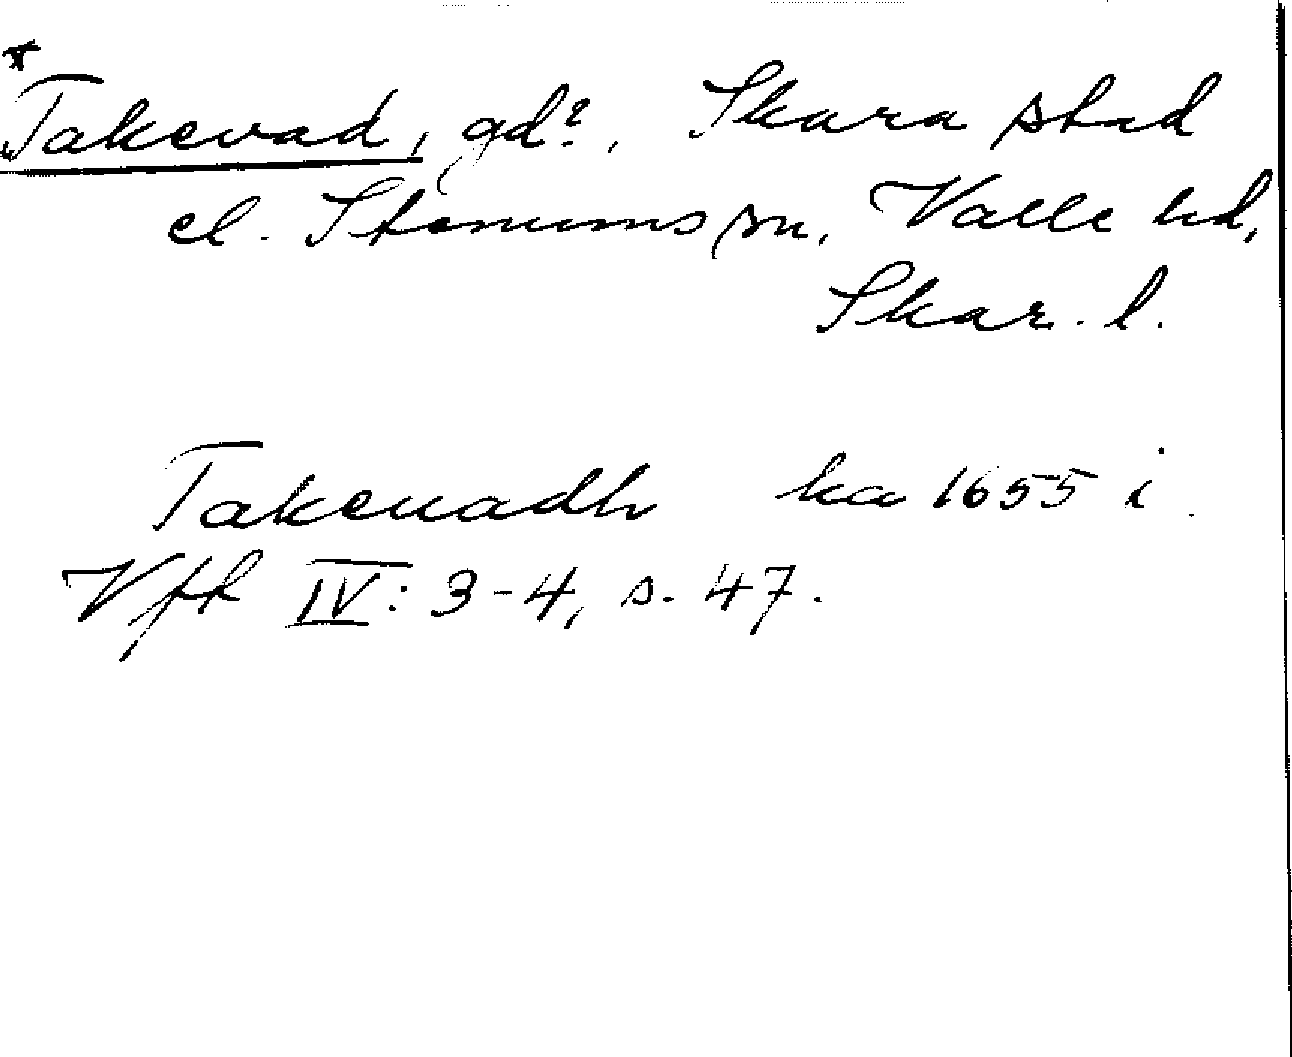 *
Takevad, gd?, Skara stad
el. Stenums sn, Valle hd,
Skar. l.
Takeuadh ka 1655 i
Vfk IV: 3-4, s. 47.